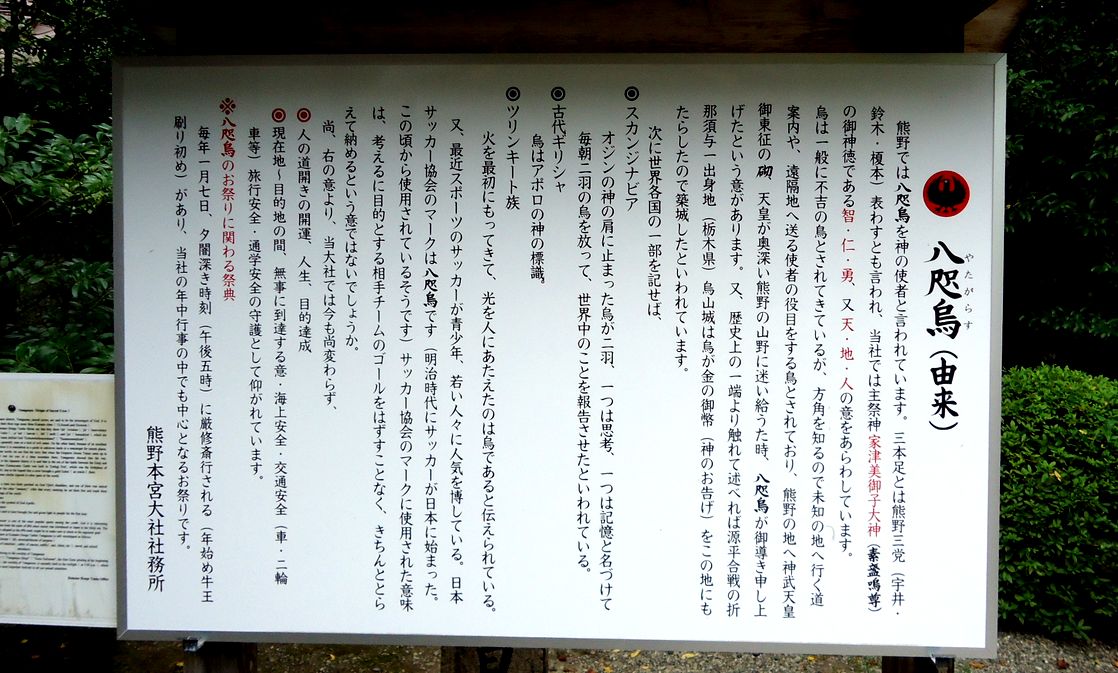 八咫烏（由来）
やたがらす
熊野では八咫烏を神の使者と言われています。三本足とは熊野三党（宇井・
鈴木・榎本）表わすとも言われ、当社では主祭神家津美御子大神（素盞嗚尊）
の御神徳である智・仁・勇、又天・地・人の意をあらわしています。
烏は一般に不吉の鳥とされてきているが、方角を知るので未知の地へ行く道
案内や、遠隔地へ送る使者の役目をする鳥とされており、熊野の地へ神武天皇
御東征の砌　天皇が奥深い熊野の山野に迷い給うた時、八咫烏が御導き申し上
げたという意があります。又、歴史上の一端より触れて述べれば源平合戦の折
那須与一出身地（栃木県）烏山城は烏が金の御幣（神のお告げ）をこの地にも
たらしたので築城したといわれています。
次に世界各国の一部を記せば、
◎スカンジナビア
オジンの神の肩に止まった烏が二羽、一つは思考、一つは記憶と名づけて
毎朝二羽の烏を放って、世界中のことを報告させたといわれている。
◎古代ギリシャ
烏はアポロの神の標識。
◎ツリンキート族
火を最初にもってきて、光を人にあたえたのは烏であると伝えられている。
又、最近スポーツのサッカーが青少年、若い人々に人気を博している。日本
サッカー協会のマークは八咫烏です（明治時代にサッカーが日本に始まった。
この頃から使用されているそうです）サッカー協会のマークに使用された意味
は、考えるに目的とする相手チームのゴールをはずすことなく、きちんととら
えて納めるという意ではないでしょうか。
尚、右の意より、当大社では今も尚変わらず、
◎人の道開きの開運、人生、目的達成
◎現在地～目的地の間、無事に到達する意・海上安全・交通安全（車・二輪
車等）旅行安全・通学安全の守護として仰がれています。
※八咫烏のお祭りに関わる祭典
毎年一月七日、夕闇深き時刻（午後五時）に厳修斎行される（年始め牛王
刷り初め）があり、当社の年中行事の中でも中心となるお祭りです。
熊野本宮大社社務所